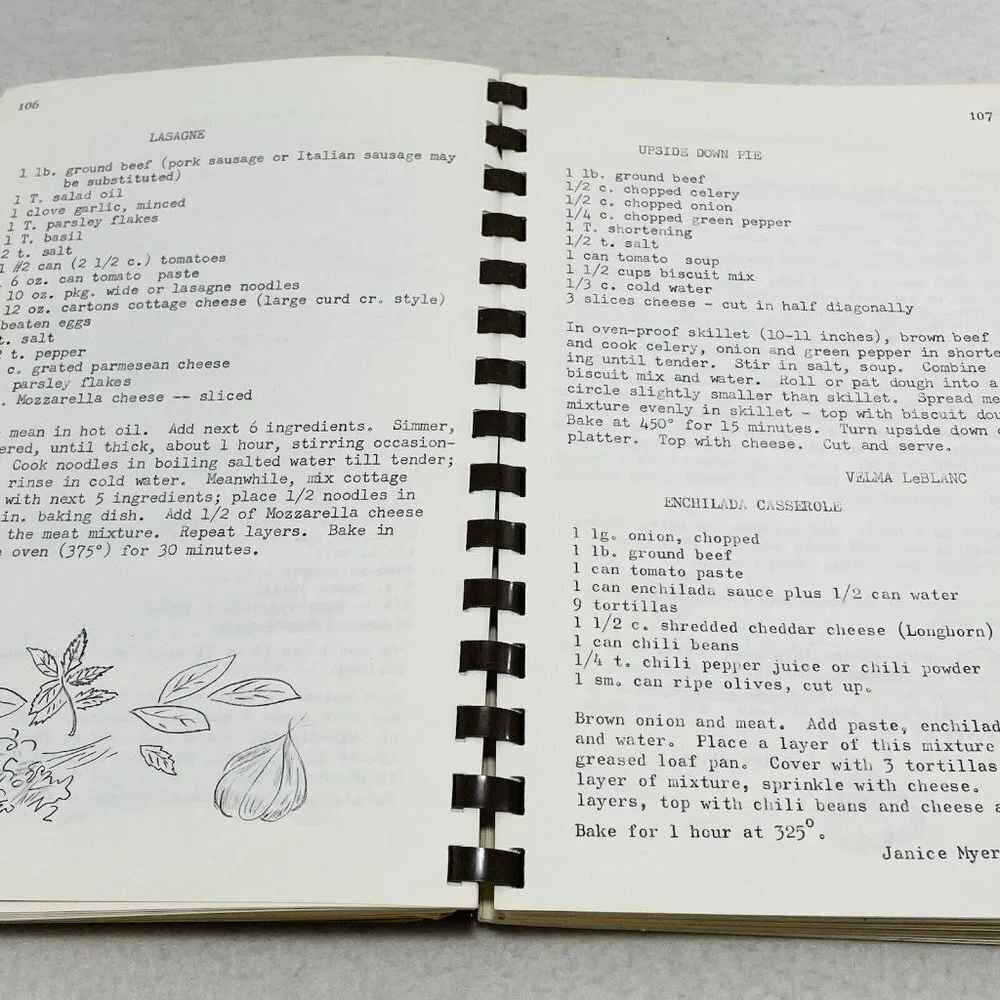 106
LASAGNE
1 lb. ground beef (pork sausage or Italian sausage may
be substituted)
1 T. salad oil
1 clove garlic, minced
1 T. parsley flakes
1 T. basil
2 t. salt
1 #2 can (2 1/2 c.) tomatoes
6 oz. can tomato paste
10 oz. pkg. wide or lasagne noodles
12 oz. cartons cottage cheese (large curd cr. style)
beaten eggs
t. salt
t. pepper
c. grated parmesean cheese
parsley flakes
. Mozzarella cheese -- sliced
mean in hot oil. Add next 6 ingredients. Simmer,
ered, until thick, about 1 hour, stirring occasion-
Cook noodles in boiling salted water till tender;
rinse in cold water. Meanwhile, mix cottage
with next 5 ingredients; place 1/2 noodles in
in. baking dish. Add 1/2 of Mozzarella cheese
the meat mixture. Repeat layers. Bake in
oven (375°) for 30 minutes.
107
UPSIDE DOWN PIE
1 lb. ground beef
1/2 c. chopped celery
1/2 c. chopped onion
1/4 c. chopped green pepper
1 T. shortening
1/2 t. salt
1 can tomato soup
1 1/2 cups biscuit mix
1/3 c. cold water
3 slices cheese - cut in half diagonally
In oven-proof skillet (10-11 inches), brown beef
and cook celery, onion and green pepper in shorte
ing until tender. Stir in salt, soup. Combine
biscuit mix and water. Roll or pat dough into a
circle slightly smaller than skillet. Spread me
mixture evenly in skillet - top with biscuit dou
Bake at 450° for 15 minutes. Turn upside down o
platter. Top with cheese. Cut and serve.
VELMA LeBLANC
ENCHILADA CASSEROLE
1 lg. onion, chopped
1 lb. ground beef
1 can tomato paste
1 can enchilada sauce plus 1/2 can water
9 tortillas
1 1/2 c. shredded cheddar cheese (Longhorn)
1 can chili beans
1/4 t. chili pepper juice or chili powder
1 sm. can ripe olives, cut up.
Brown onion and meat. Add paste, enchilad
and water. Place a layer of this mixture
greased loaf pan. Cover with 3 tortillas
layer of mixture, sprinkle with cheese.
layers, top with chili beans and cheese a
Bake for 1 hour at 325°.
Janice Myer